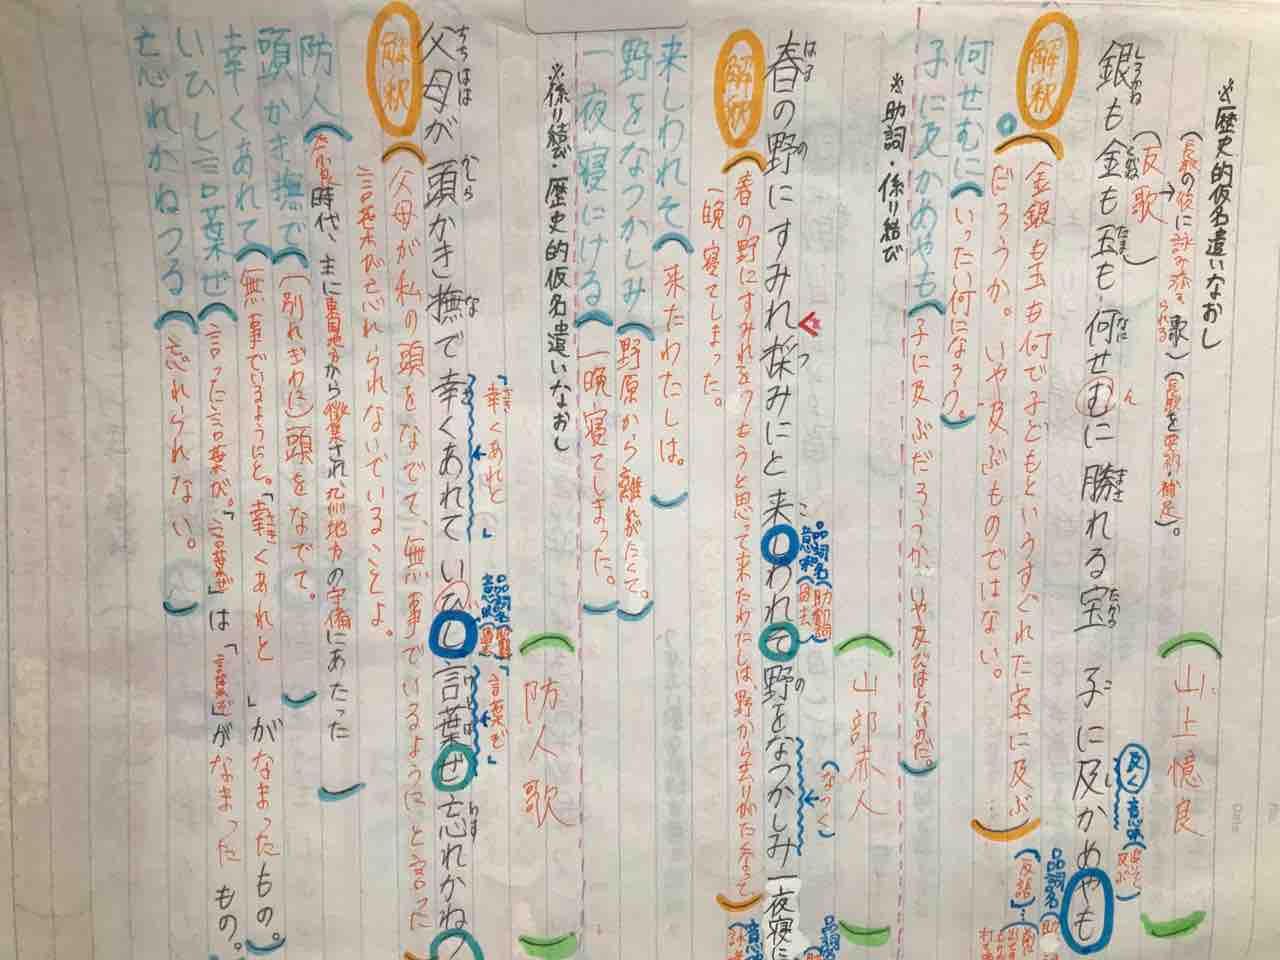 ※歴史的仮名遣いなおし
(長歌の後に詠み添えられる歌)(長歌を要約・補足)。
(反歌)
銀も金も玉も何せむに勝れる宝 子に及かめやも
しろかね
くがね
たま
なに
ん
まさ
たから
こ
し
山上憶良
及く 意味
品詞名
「反語」…
解釈
金銀も玉も何で子どもというすぐれた宝に及ぶ
だろうか。いや及ぶものではない。
何せむに(いったい何になろう。)
子に及かめやも(子に及ぶだろうか、いや及びはしないのだ。)
※助詞・係り結び
山部赤人
春の野にすみれ採みにと来しわれそ野をなつかしみ一夜寝に
はる
の
つ
こ
の
品詞名 助動詞
意味 過去
(なつく)
品詞名
意味
解釈
春の野にすみれをつもうと思って来たわたしは、野から去りがたくなって、
一晩寝てしまった。
来しわれそ(来たわたしは。)
野をなつかしみ(野原から離れがたくて。)
一夜寝にける(一晩寝てしまった。)
※係り結び・歴史的仮名遣いなおし
防人歌
「幸くあれと」
「言葉ぞ」
品詞名
意味
父母が頭かき撫で幸くあれていひし言葉ぜ忘れかねつ
ちちはは
かしら
な
わす
解釈
父母が私の頭をなでて、無事でいるようにと言った
言葉が忘れられないでいることよ。
防人(奈良時代、主に東国地方から徴集され、九州地方の守備にあたった)
頭かき撫で((別れぎわに)頭をなでて。)
幸くあれて(無事でいるようにと。「幸くあれと」がなまったもの。)
いひし言葉ぜ(言った言葉が。「言葉ぜ」は「言葉ぞ」がなまったもの。)
忘れかねつる(忘れられない。)